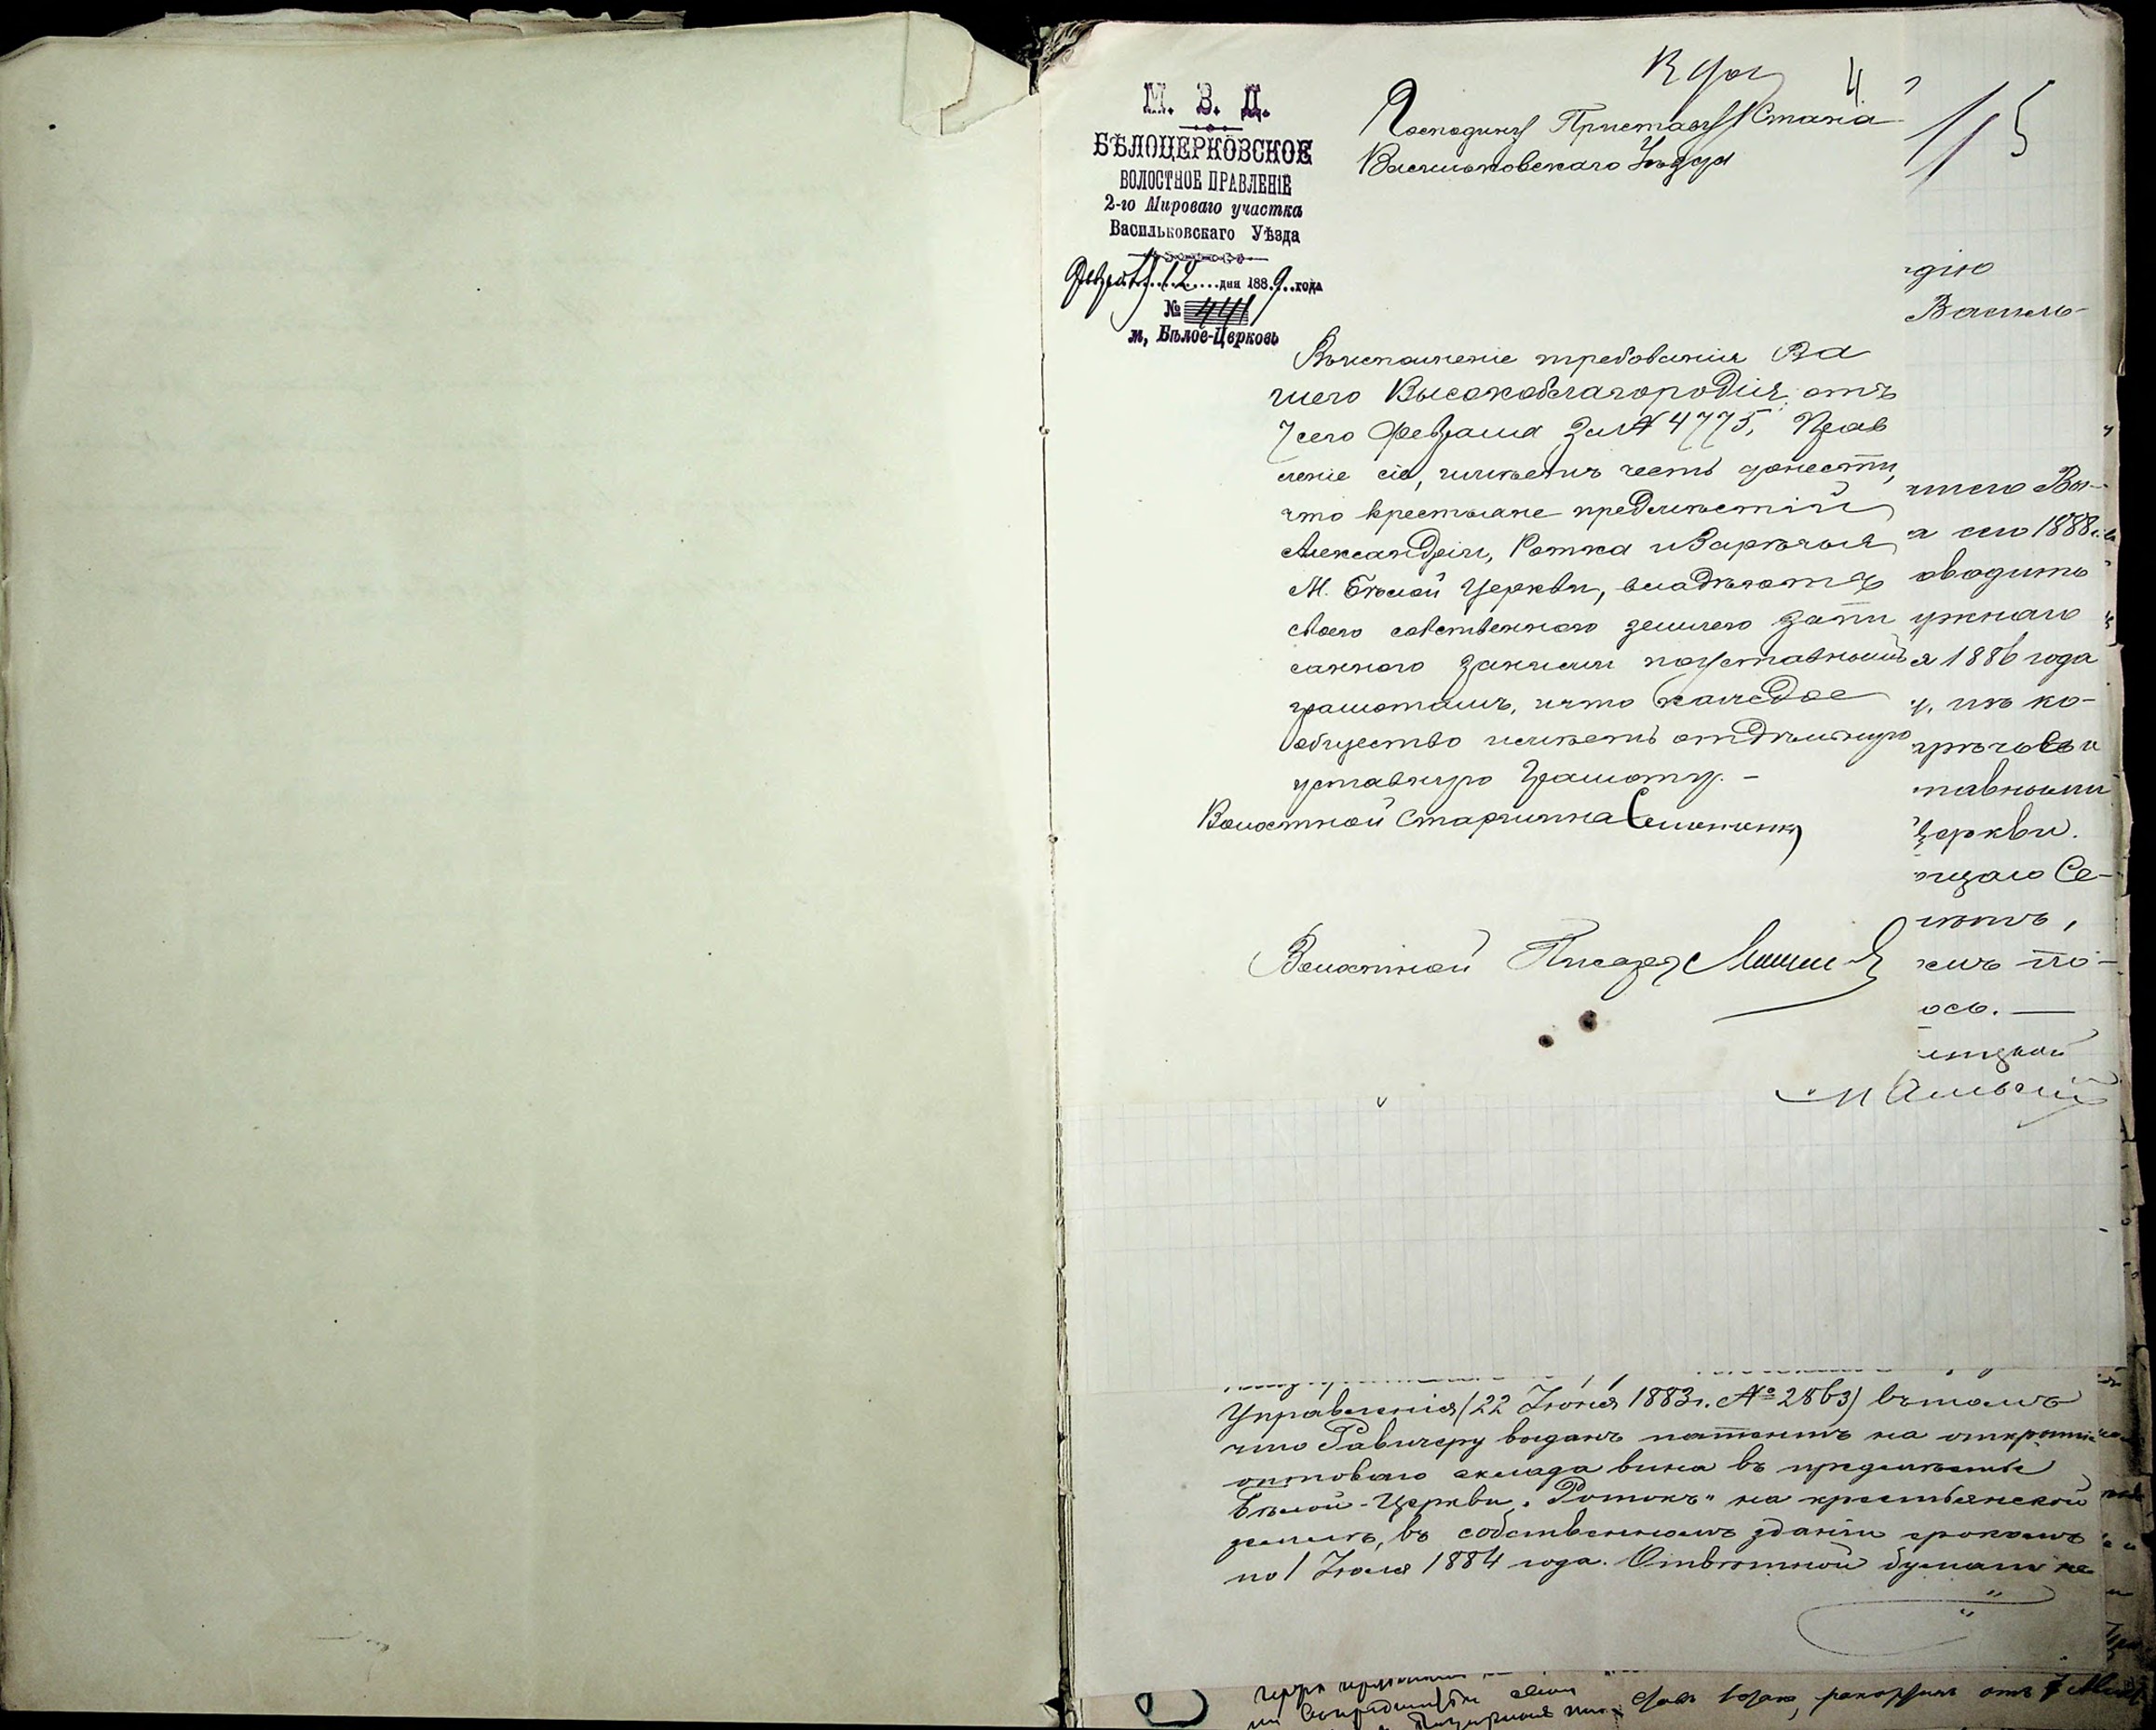 М. В. Д.
БѢЛОЦЕРКОВСКОЕ
ВОЛОСТНОЕ ПРАВЛЕНІЕ
2-го Мироваго участка
Васильковскаго Уѣзда
Февраля 12 дня 1889 года
№ 441
м, Бѣлое-Церковь
4
Господину Приставу Стана
Васильковскаго Уѣзда
15
Въисполненіе требованія Ва
шего Высокоблагородія отъ
7 сего Февраля за № 4775, Прав
леніе сіе, имѣетъ честь донести,
что крестьяне предмѣстій
Александріи, Ротка и Зарѣчья
М. Бѣлой Церкви, владѣютъ
своего собственного землею запи
санного заними поуставнымъ
грамотамъ, ичто каждое
общество имѣетъ отдѣльную
уставную Грамоту. -
Волостной Старшина
Волостной Писарь
дію
Василь-
шего Вы-
я сего 1888 г.
оводить
ужнаго
я 1886 года
и, въ ко-
арѣчьѣ и
тавными
Церкви.
щаго Се-
мъ по-
ось. —
Управленія (22 Іюня 1883 г. № 2863) вътомъ
что Равичеру выданъ патентъ на открытіе
оптоваго склада вина въ предмѣстьѣ
Бѣлой-Церкви „Ротокъ" на крестьянской
землѣ, въ собственномъ зданіи срокомъ
по 1 Іюля 1884 года. Отвѣтной бумаги не
рапортъ отъ 7